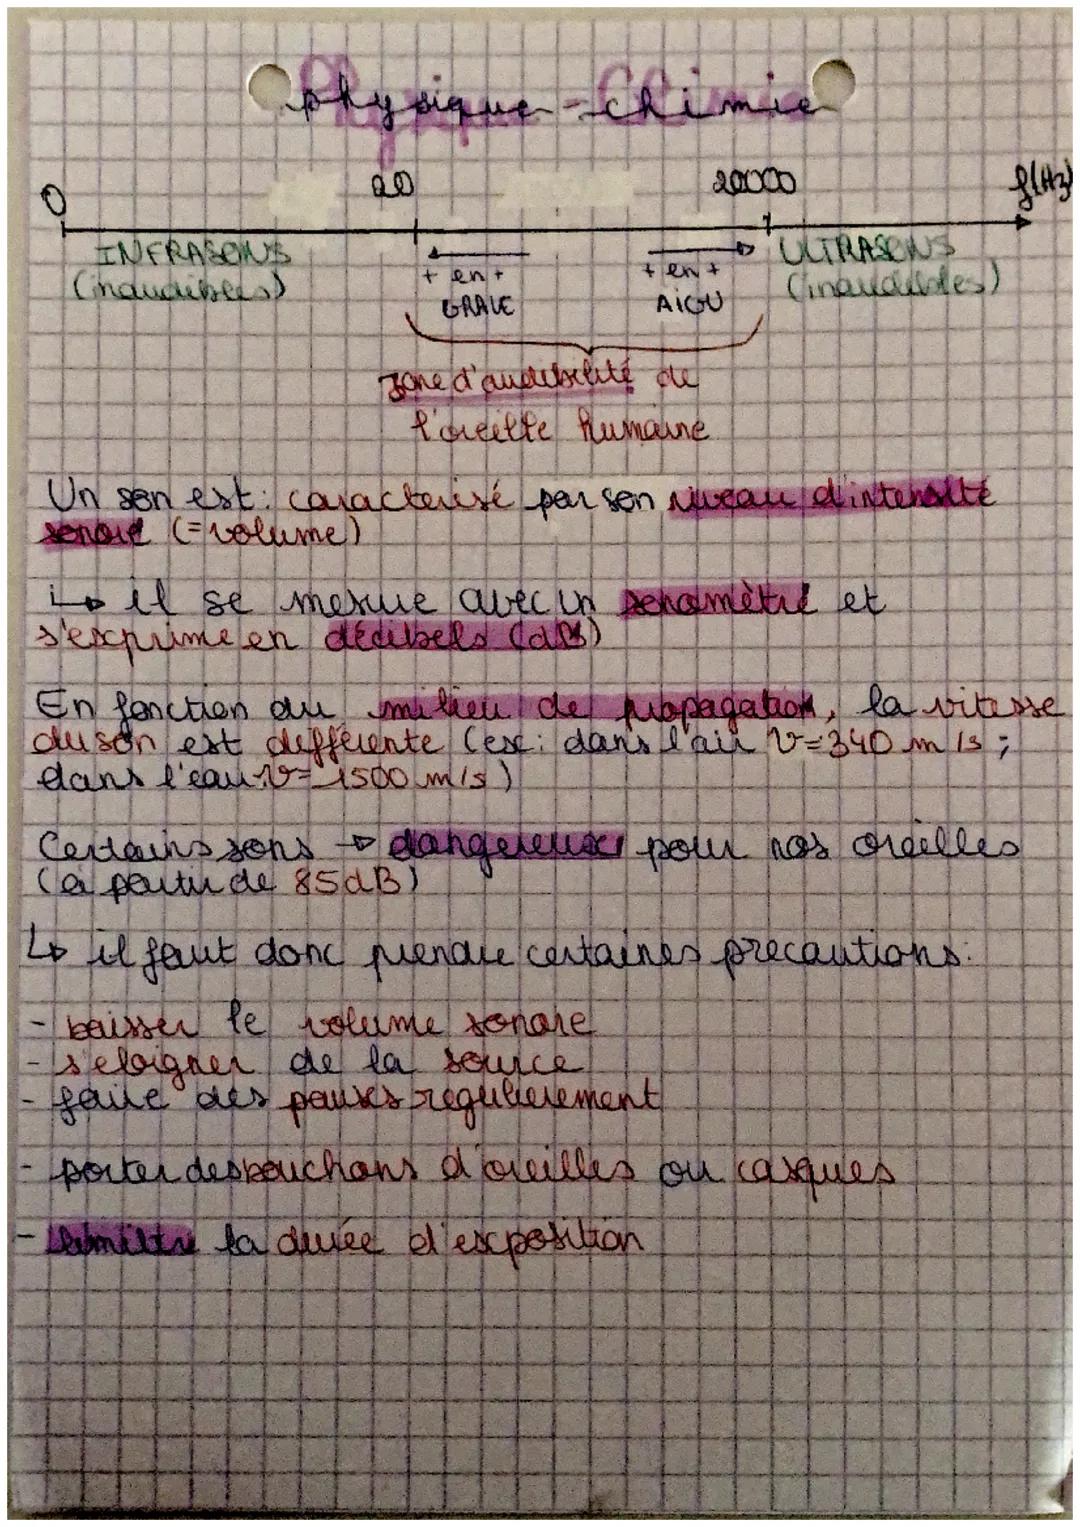 Physique-Chimie
0 20 20000 f(Hz)
INFRASONS ULTRASONS
(inaudibles) + en + + en + (inaudibles)
GRAVE AIGU
zone d'audibilité de
l'oreille humaine
Un son est : caracterisé par son niveau d'intensité
sonore (=volume)
↳ il se mesure avec un sonomètre et
s'exprime en décibels (dB)
En fonction du milieu de propagation, la vitesse
du son est différente (ex : dans l'air V=340 m/s ;
dans l'eau V=1500 m/s)
Certains sons → dangereux pour nos oreilles
(a partir de 85dB)
↳ il faut donc prendre certaines precautions:
- baisser le volume sonore
- s'eloigner de la source
- faire des pauses regulierement
- porter des bouchons d'oreilles ou casques
- limiter la durée d'exposition